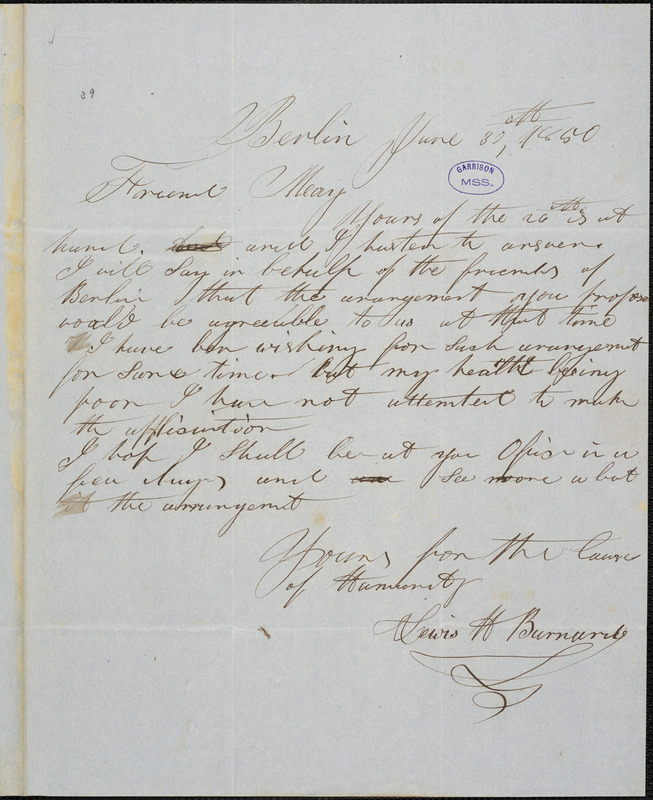 39
Berlin June 30th, 1850
GARRISON
MSS.
Friend May
Yours of the 26th is at
hand. and I hasten to answer.
I will Say in behalf of the friends of
Berlin that the arangement you propose
would be agreeable to us at that time
I have ben wishing for Such arangemt
for Some time. but my health being
poor I have not attemted to make
the applicattion
I hop I Shall be at you Ofise in a
few days and See more a bout
the arrangemt
Yours for the Cause
of Humanity
Lewis H Barnard